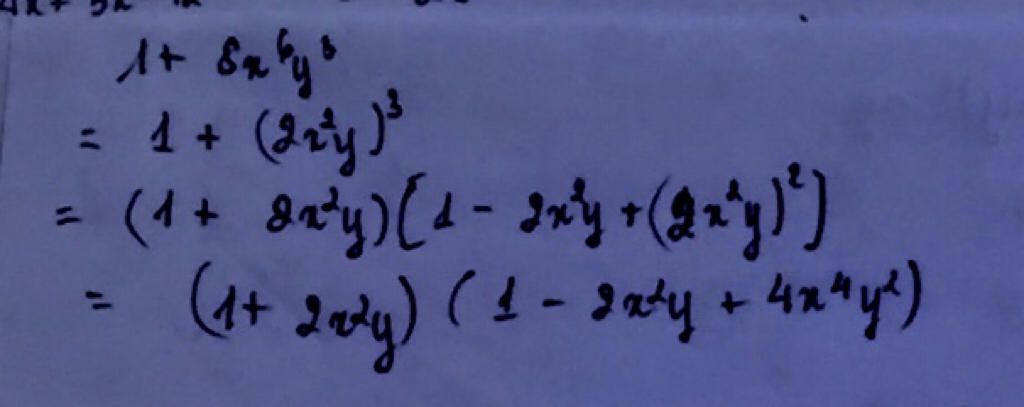 1 + 8x⁶y³
= 1 + (2x²y)³
= (1 + 2x²y)[1 - 2x²y + (2x²y)²]
= (1 + 2x²y) (1 - 2x²y + 4x⁴y²)